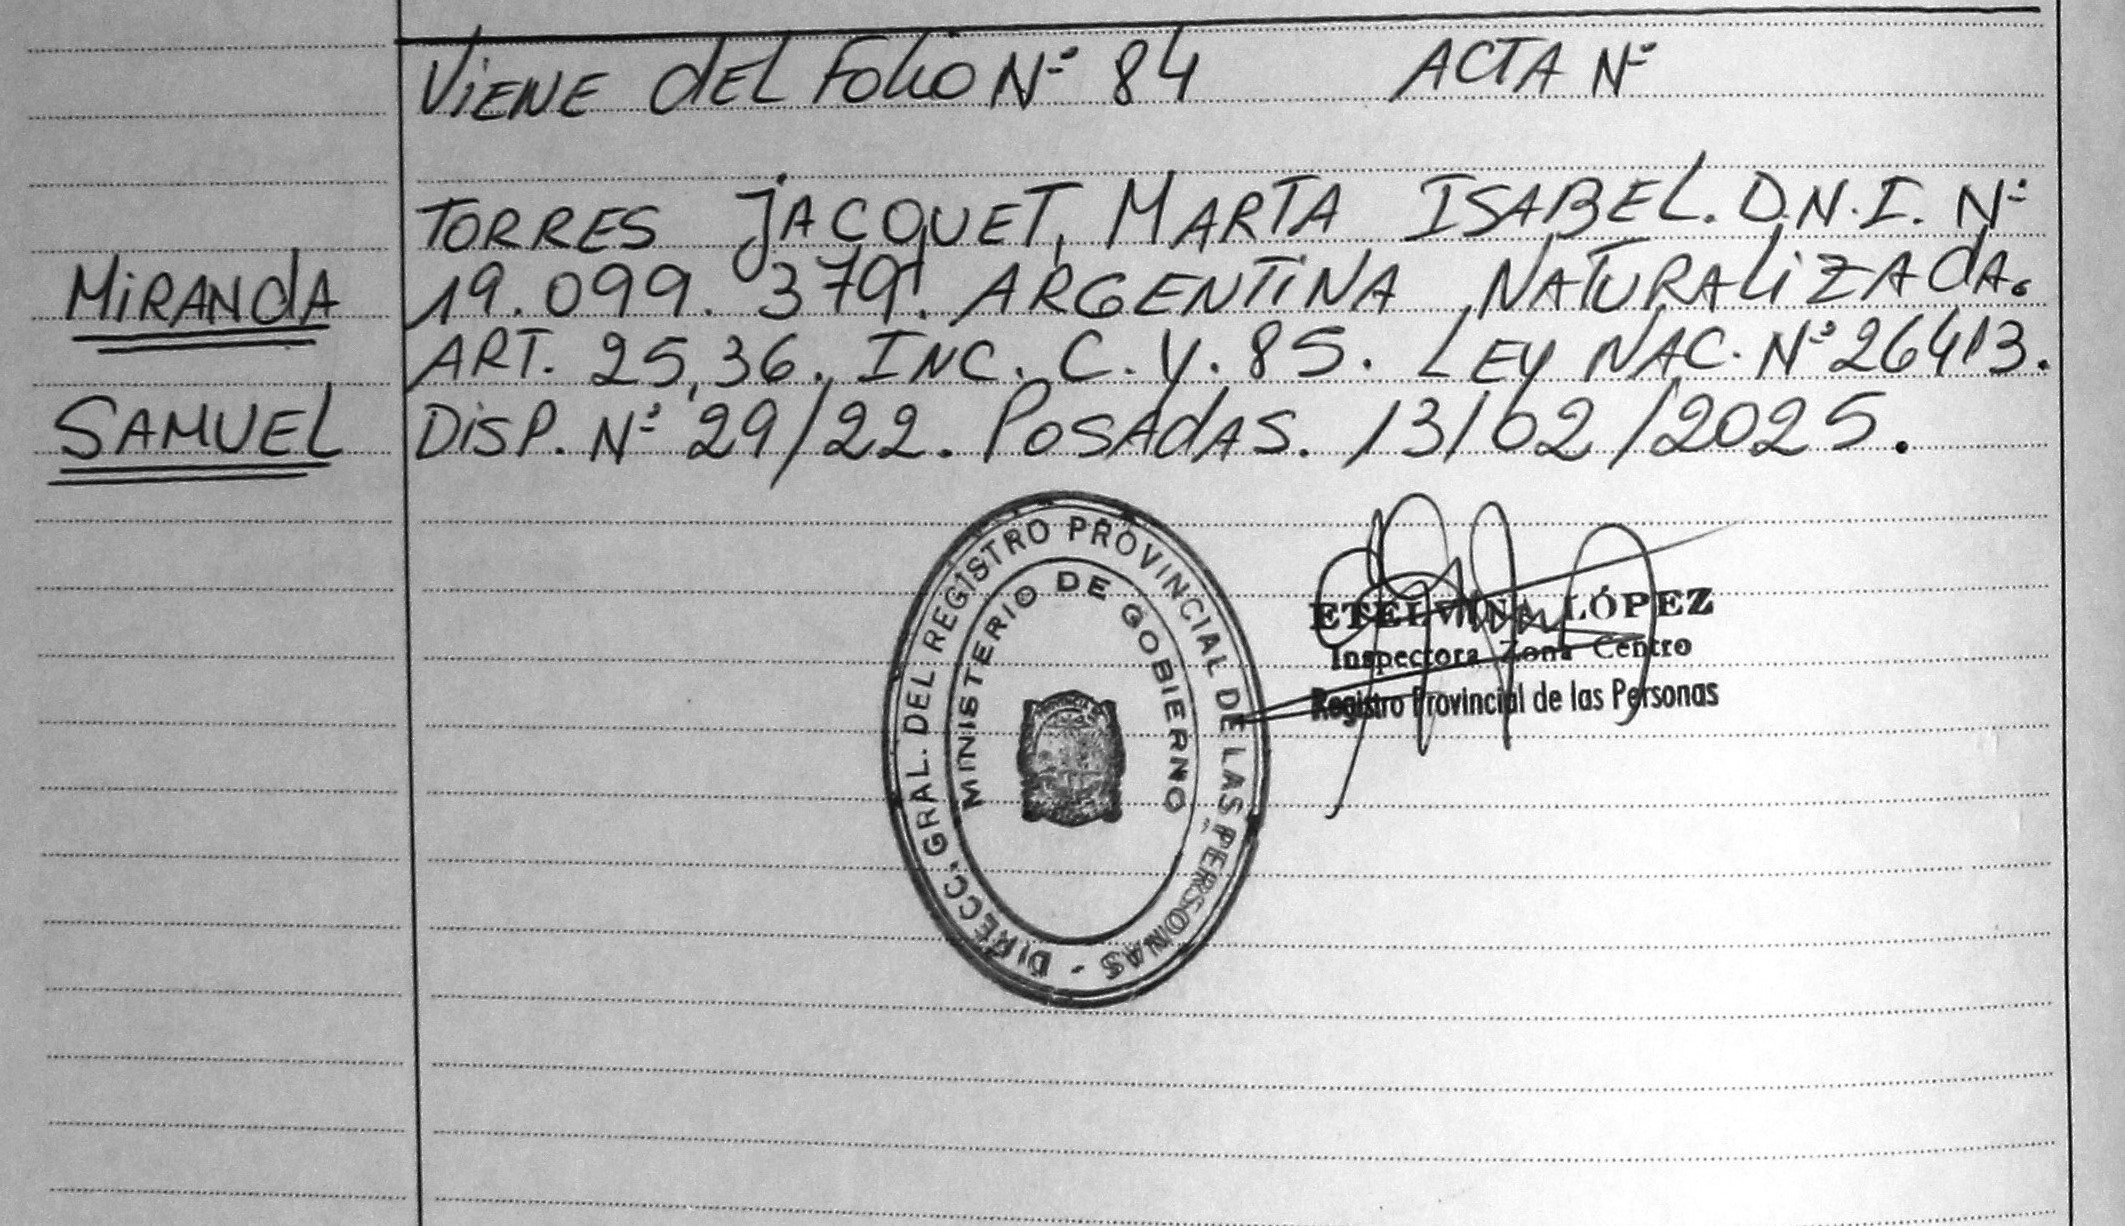 ViENE dEL FoLiO Nº 84 ACTA Nº
TORRES JACQUET, MARTA ISABEL. D.N.I. Nº
MiRANdA
19.099.379. ARGENTiNA NATURALiZAdA.
ART. 25,36. INC. C. Y. 85. LEY NAC. Nº 26413.
SAMUEL
DiSP. Nº 29/22. POSAdAS. 13/02/2025.
DIRECC. GRAL. DEL REGISTRO PROVINCIAL DE LAS PERSONAS -
MINISTERIO DE GOBIERNO
ETELVINA LÓPEZ
Inspectora Zona Centro
Registro Provincial de las Personas